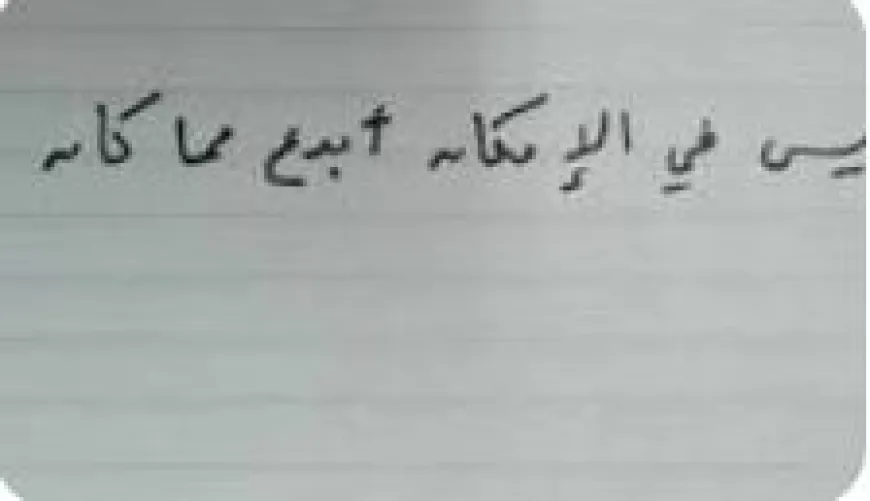 يس في الإمكان أبدع مما كان